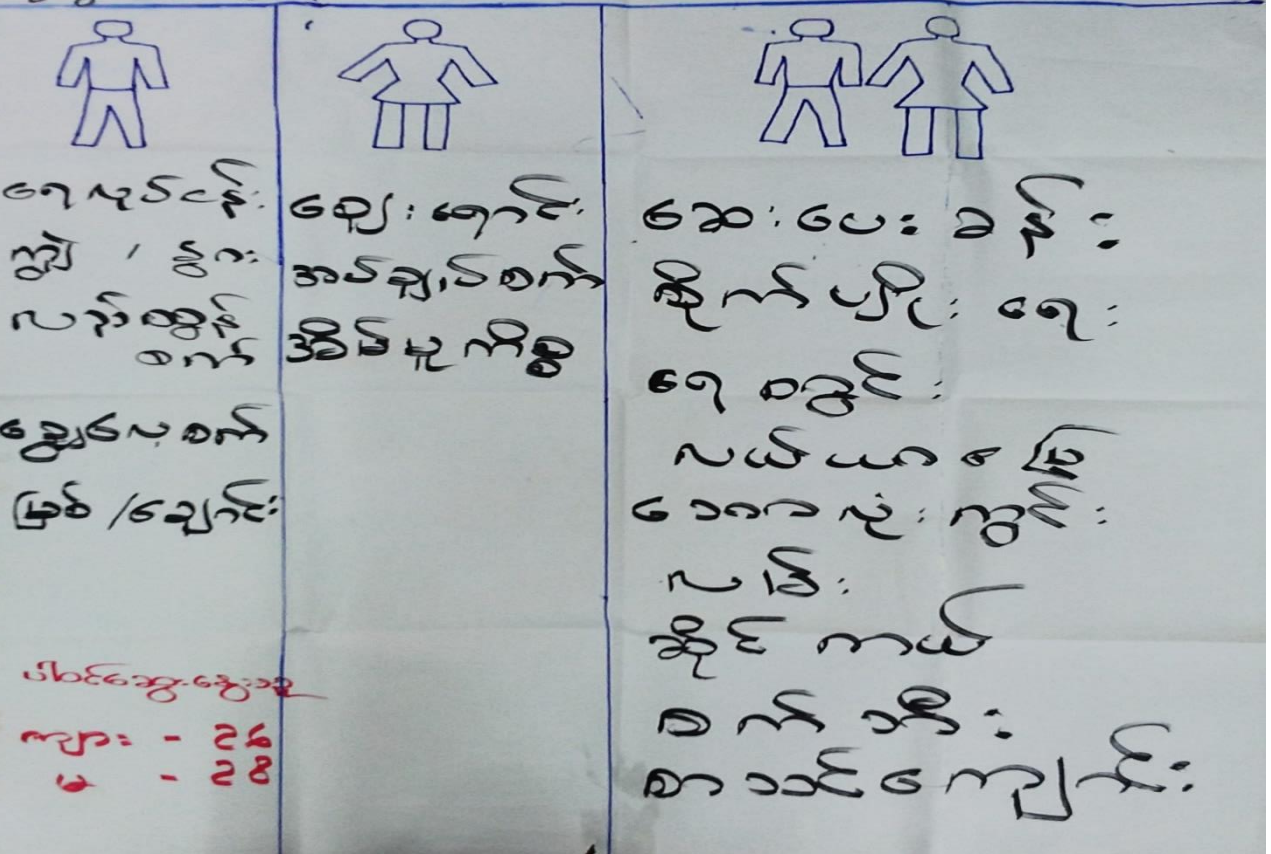 ရေလုပ်ငန်း
ကျွဲ / နွား
လည်ထွန်
စက်
ချွေလှေ့စက်
မြစ် /ချောင်း
ပါဝင်ဆွေးနွေးသူ
ကျား - 26
မ - 28
ဈေးရောင်း
အပ်ချုပ်စက်
အိမ်မှုကိစ္စ
ဆေးပေးခန်း
စိုက်ပျိုးရေး
ရေတွင်း
လယ်ယာမြေ
ဘောလုံးကွင်း
လမ်း
ဆိုင်ကယ်
စက်ဘီး
စာသင်ကျောင်း